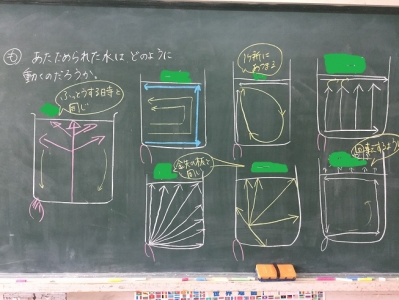 も あたためられた水は どのように
動くのだろうか。
ふっとうする時と
同じ
1ヶ所に
あつまる
金ぞくの板と
同じ
回転するように